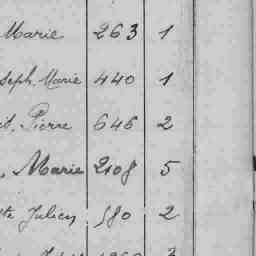 Marie 263 1
seph, Marie 440 1
Pierre 646 2
, Marie 2108 5
Julien 580 2